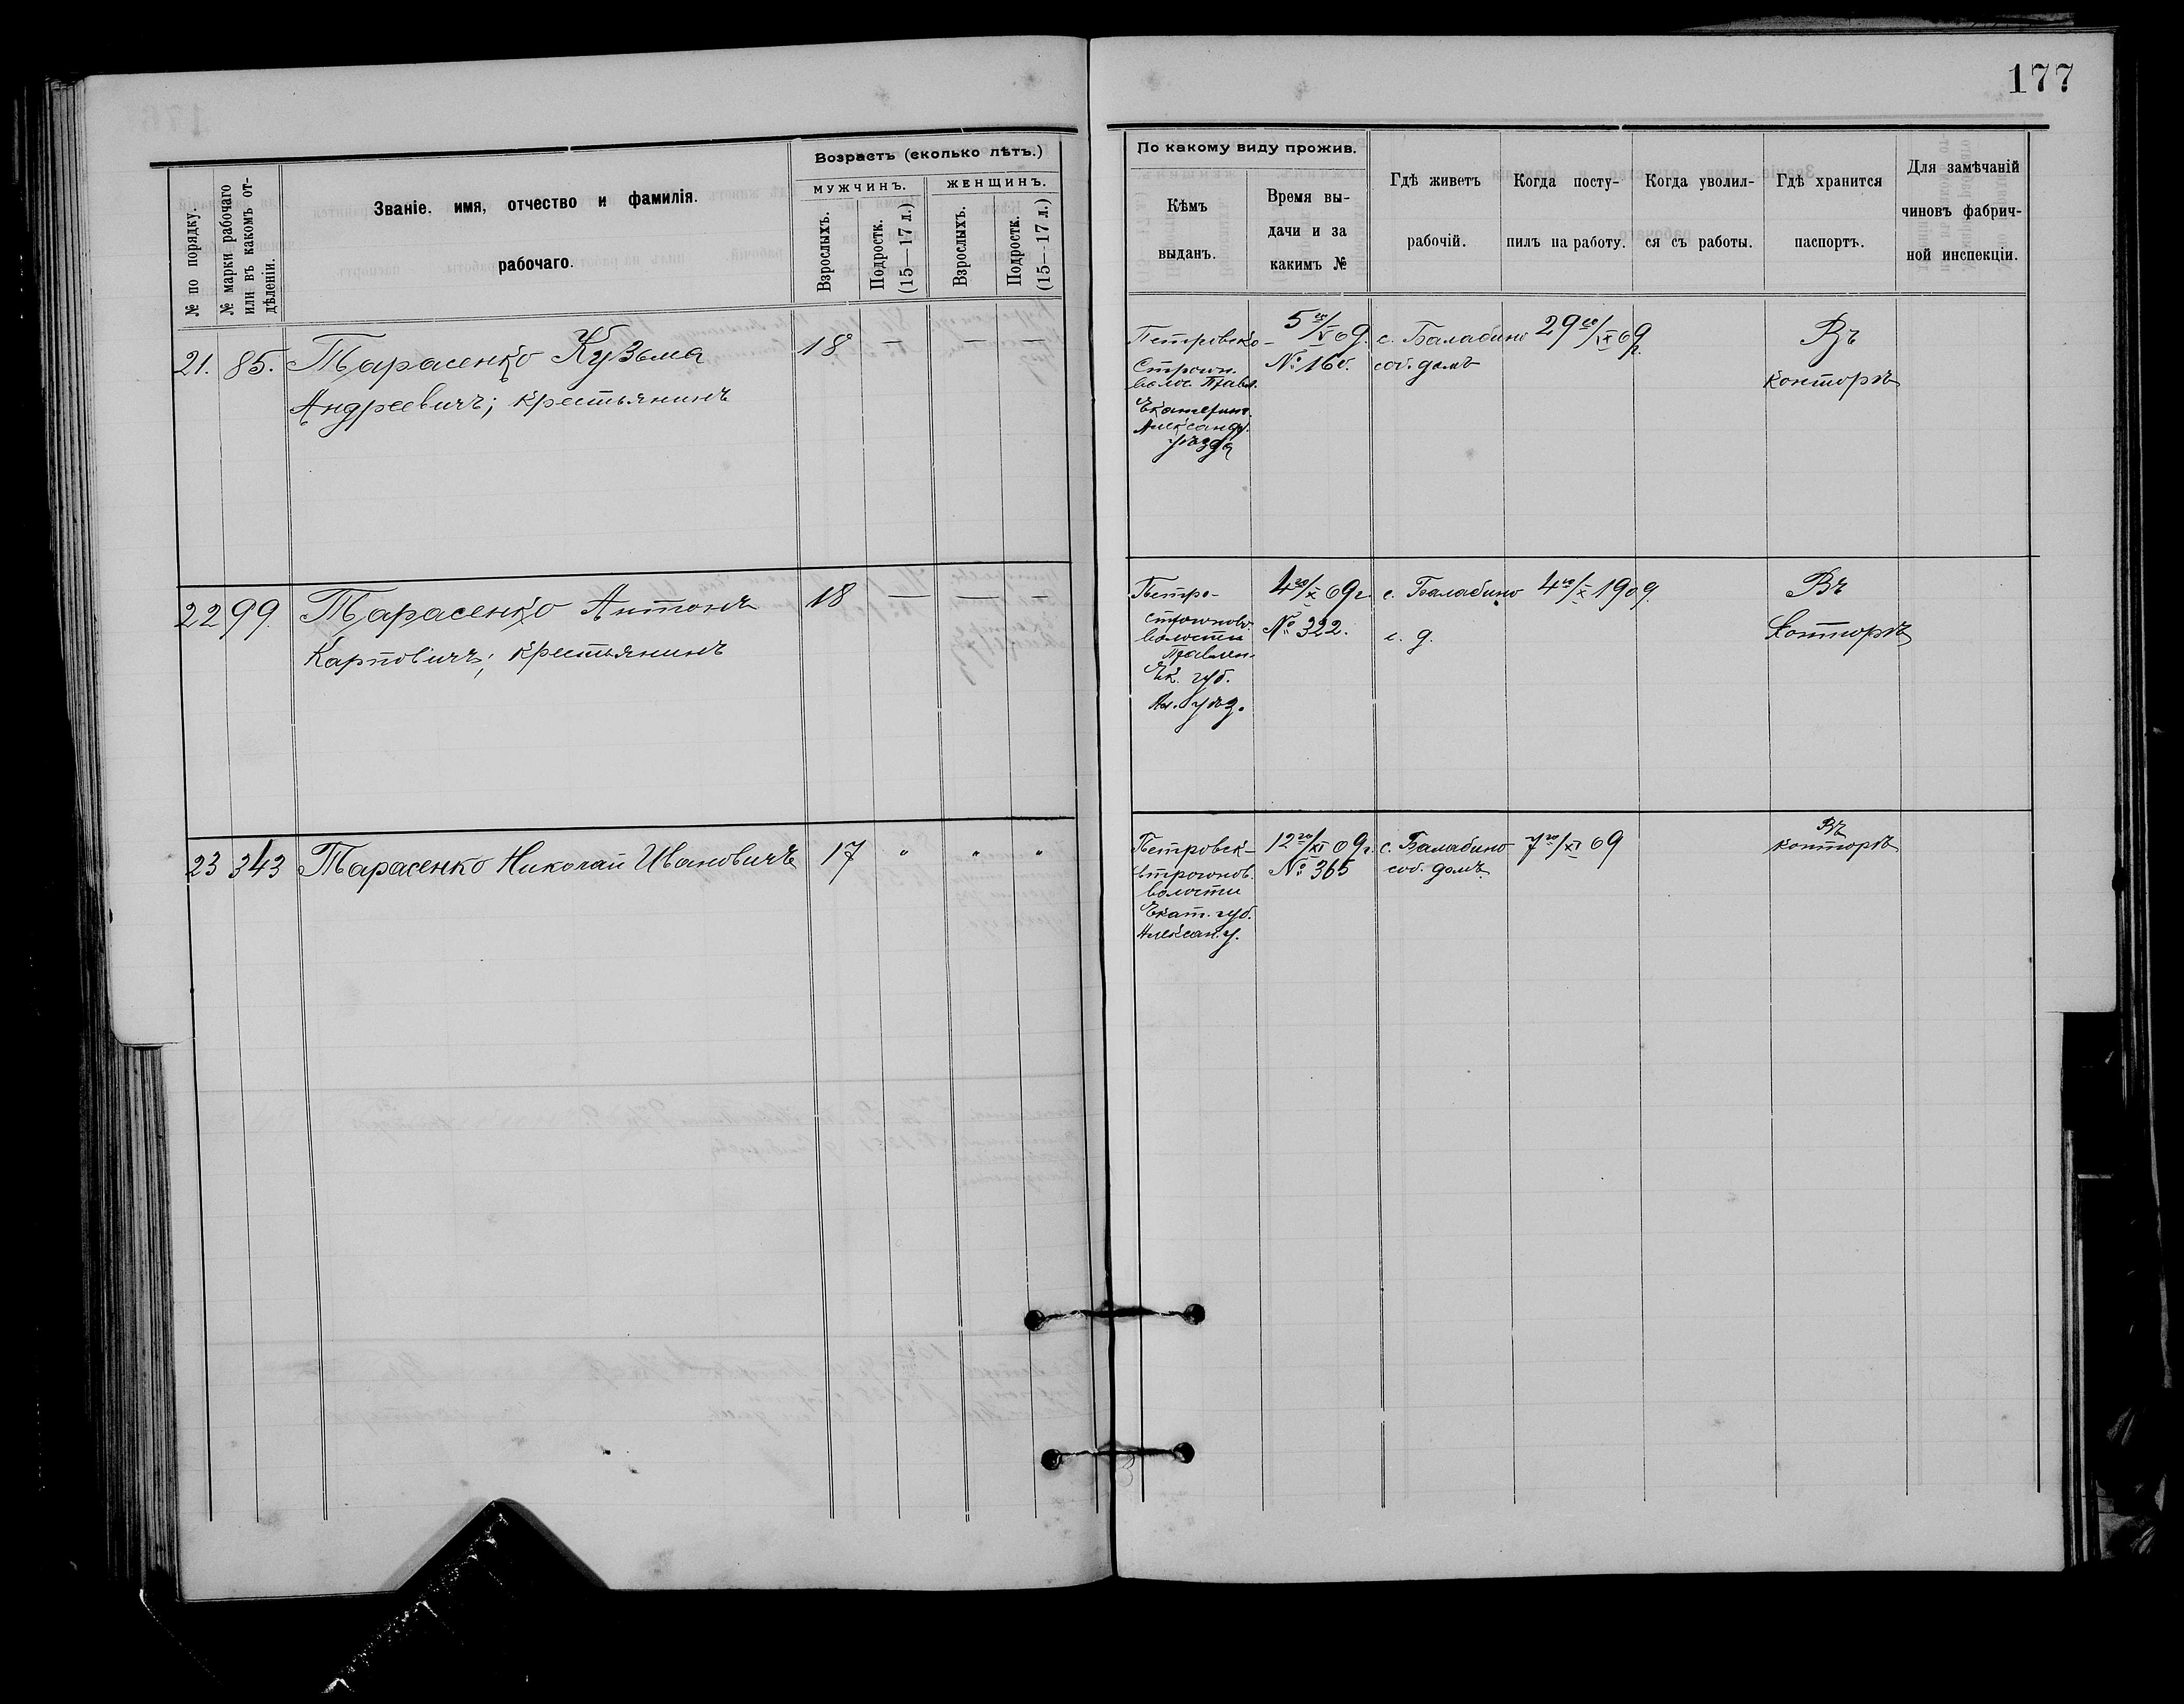 177
Возрастъ (сколько лѣтъ.)
МУЖЧИНЪ.
ЖЕНЩИНЪ.
№ по порядку.
№ марки рабочаго
или въ какомъ от-
дѣленіи.
Званіе. имя, отчество и фамилія.
рабочаго.
Взрослыхъ.
Подростк.
(15—17 л.)
Взрослыхъ.
Подростк.
(15—17 л.)
По какому виду прожив.
Кѣмъ
выданъ.
Время вы-
дачи и за
какимъ №
Гдѣ живетъ
рабочій.
Когда посту-
пилъ на работу.
Когда уволил-
ся съ работы.
Гдѣ хранится
паспортъ.
Для замѣчаній
чиновъ фабрич-
ной инспекціи.
21. 85. Тарасенко Кузьма 18 — — —
Андреевичъ; крестьянинъ
Петровско-
волос. Правл.
Екатерин.
Александр.
уѣзда
5го/V 09.
№ 166.
с. Балабино
соб. домъ
29го/IX 09
г.
Въ
конторѣ
22 99. Тарасенко Антонъ 18 — — —
Карповичъ; крестьянинъ
Петро-
волости
Правлен.
Ек. губ.
Ал. уѣз.
4го/X 09 г
№ 322.
с. Балабино
с. д.
4го/X 1909.
Въ
Конторѣ
23 343 Тарасенко Николай Ивановичъ 17 " " "
Петровск-
волости
Екат. губ.
Алексан. у.
12го/XI 09 г.
№ 365
с. Балабино
соб. домъ.
7го/XI 09
Въ
конторѣ